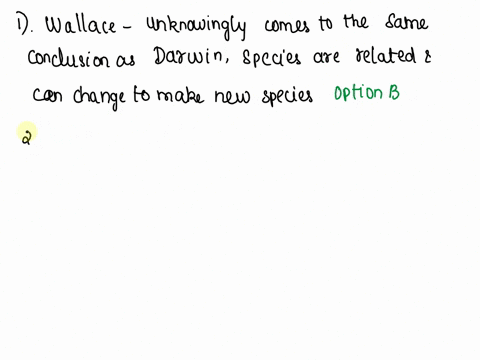 1). Wallace - unknowingly comes to the same
conclusion as Darwin, species are related &
can change to make new species option B
2